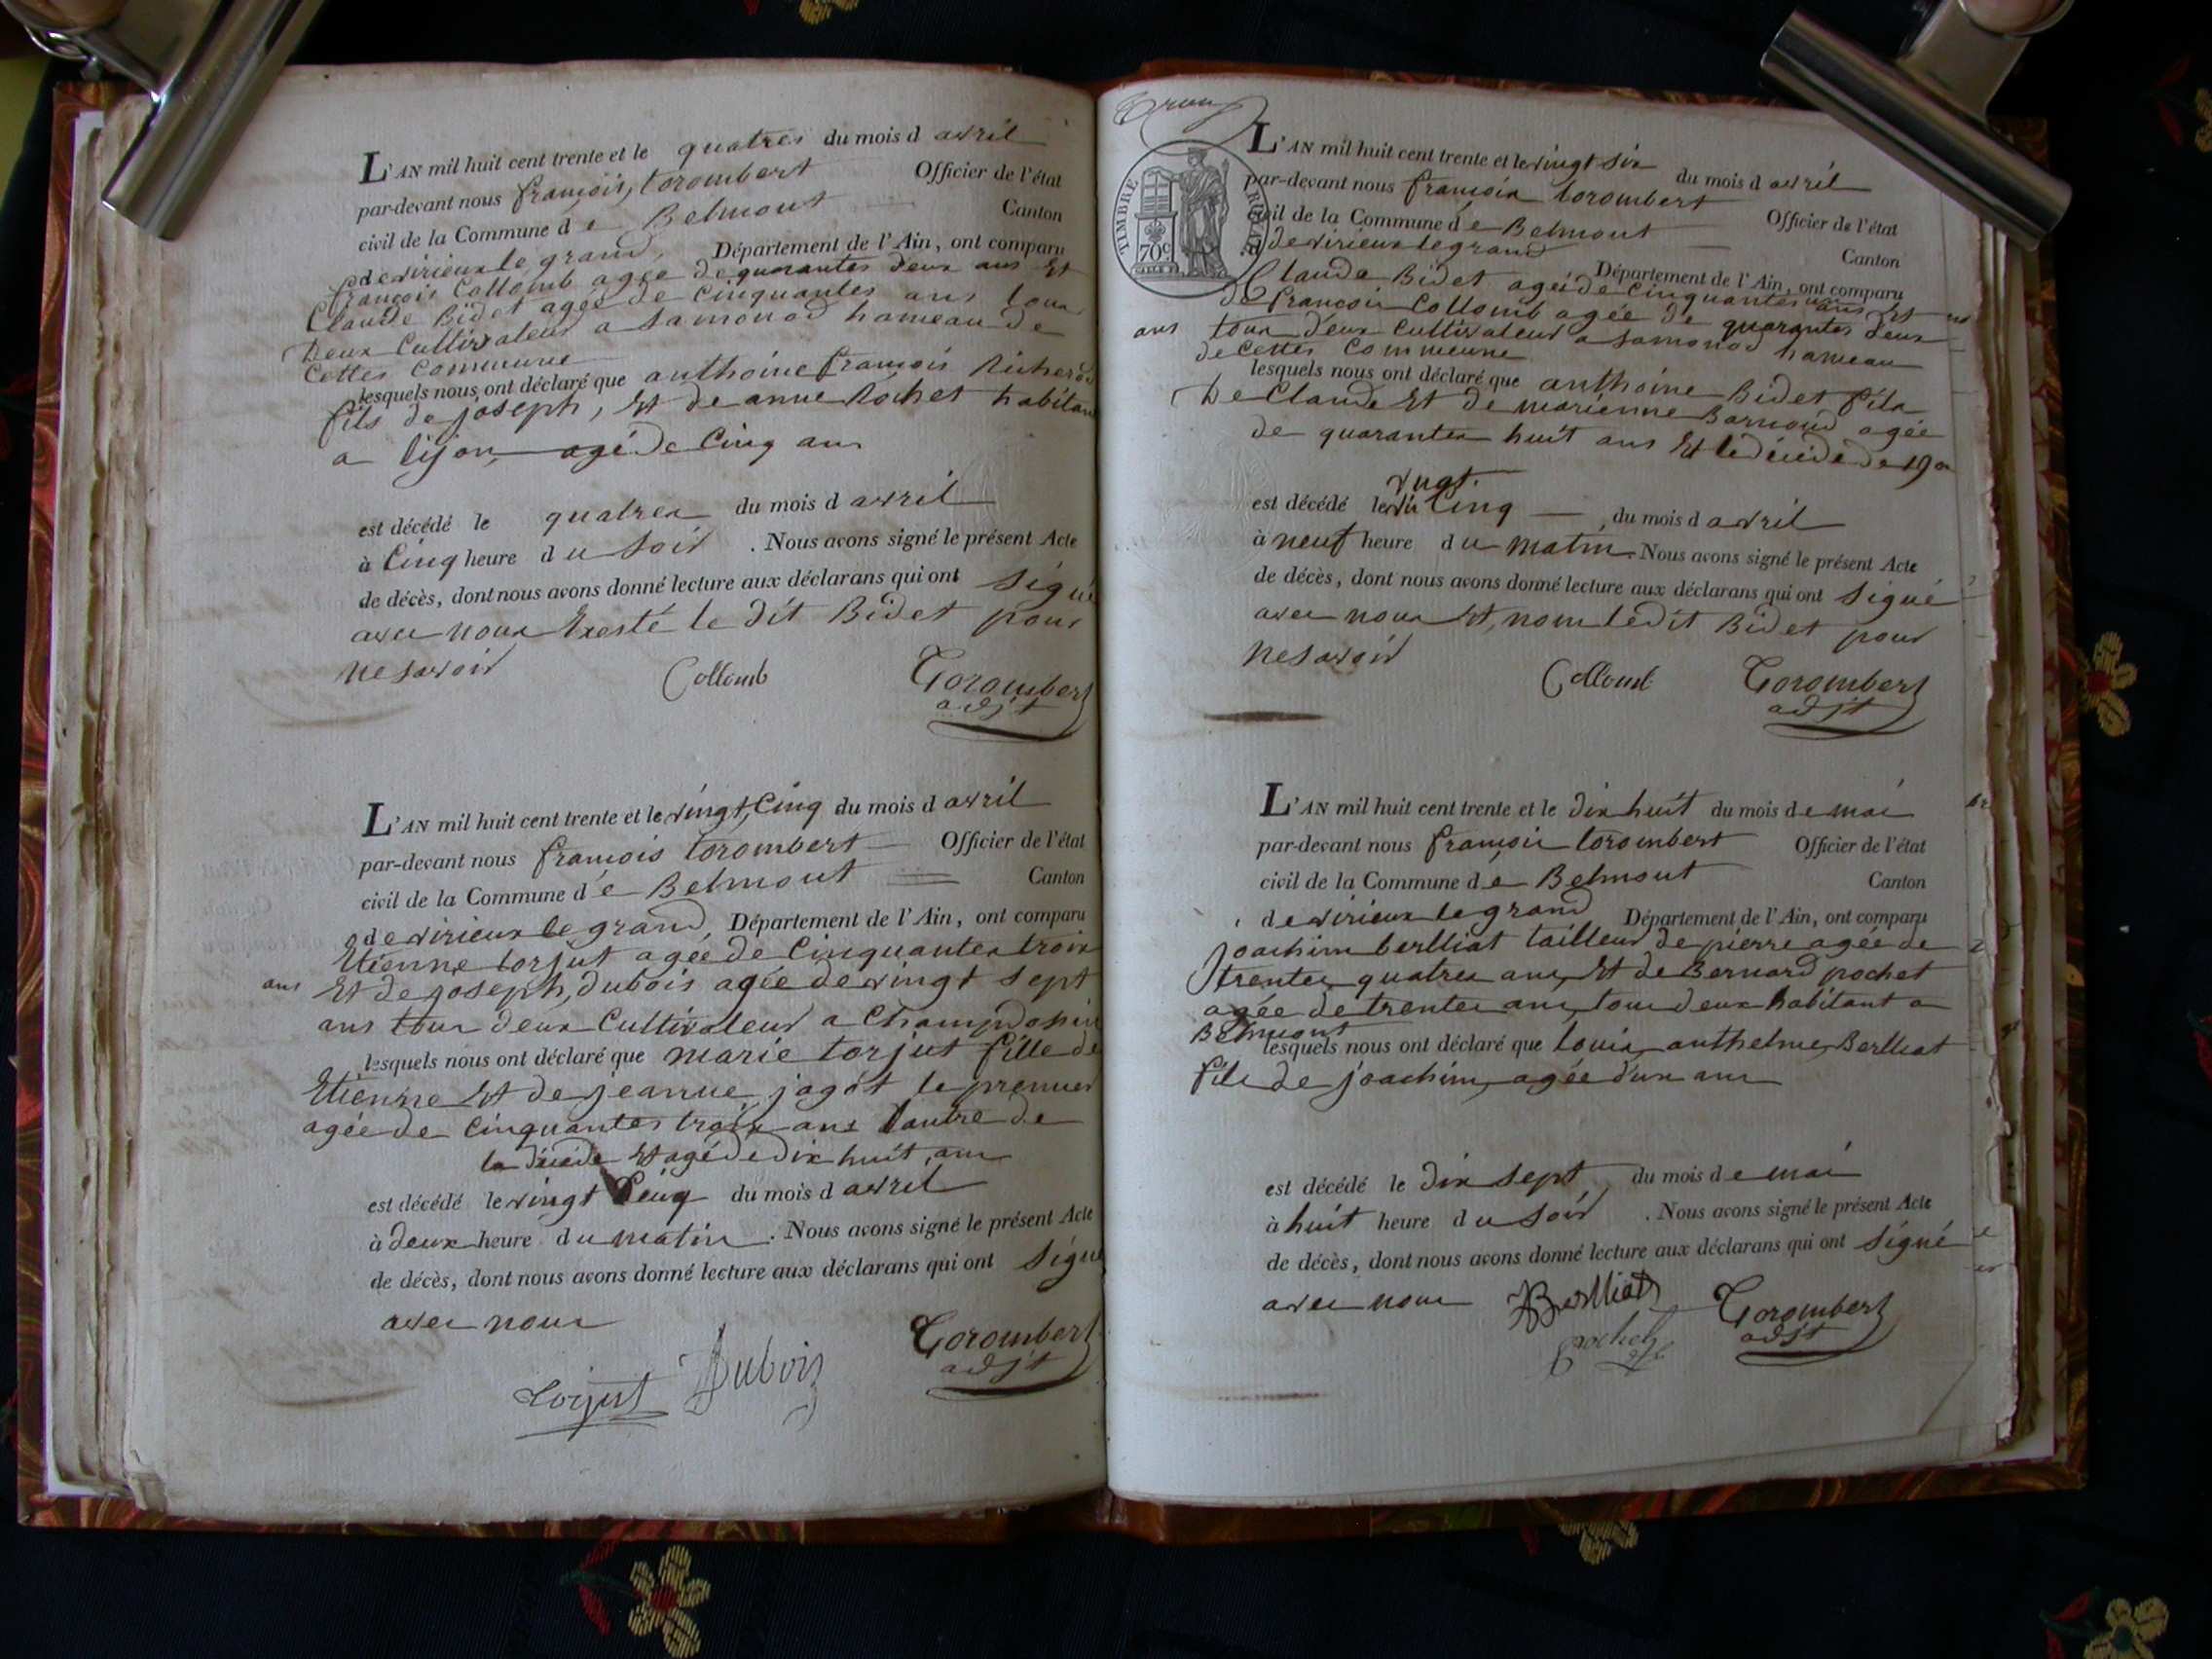 L'AN mil huit cent trente et le quatres du mois d avril
par-devant nous françois, torombert Officier de l'état
civil de la Commune d e Belmont Canton
de virieux le grand, Département de l'Ain, ont comparu
françois Collomb agée de quarantes deux ans Et
Claude Bidet agée de Cinquantes ans tous
Deux Cultivateur a Samonod hameau de
Cettes Commune
lesquels nous ont déclaré que anthoine françois Richerod
fils de joseph, Et de anne Rochet habitant
a lijon agé de Cinq ans
est décédé le quatres du mois d avril
à Cinq heure d u Soir . Nous avons signé le présent Acte
de décès, dont nous avons donné lecture aux déclarans qui ont Signé
avec nous Exesté le dit Bidet pour
ne Savoir
Collomb Torombert
adjt
L'AN mil huit cent trente et le vingt, Cinq du mois d avril
par-devant nous françois torombert Officier de l'état
civil de la Commune d e Belmont Canton
de virieux le grand, Département de l'Ain, ont comparu
Etienne torjut agée de Cinquantes trois
ans Et de joseph, dubois agée de vingt sept
ans tous deux Cultivateur a Champdossin
lesquels nous ont déclaré que marie torjut fille de
Etienne Et de jeanne jagot le premier
agée de Cinquantes trois ans l'autre de
la décéde Et agé de dix huit ans
est décédé le vingt Cinq du mois d avril
à deux heure d u matin . Nous avons signé le présent Acte
de décès, dont nous avons donné lecture aux déclarans qui ont Signé
avec nous
Torombert
adjt
Torjut Dubois
TIMBRE ROYAL
70c
L'AN mil huit cent trente et le vingt six du mois d avril
par-devant nous françois torombert Officier de l'état
civil de la Commune d e Belmont Canton
de virieux le grand Département de l'Ain, ont comparu
Claude Bidet agée de Cinquantes ans Et
de francois Collomb agée de quarantes deux
ans tous deux Cultivateur a Samonod hameau
de Cettes Commeune
lesquels nous ont déclaré que anthoine Bidet fils
De Claude Et de marienne Barnoud agée
de quarantes huit ans Et le décéde de 19 a
vingt
est décédé le Cinq du mois d avril
à neuf heure d u matin . Nous avons signé le présent Acte
de décès, dont nous avons donné lecture aux déclarans qui ont Signé
avec nous Et, nom ledit Bidet pour
ne Savoir
Collomb Torombert
adjt
L'AN mil huit cent trente et le dix huit du mois d e mai
par-devant nous françois torombert Officier de l'état
civil de la Commune d e Belmont Canton
de virieux le grand Département de l'Ain, ont comparu
Joachim berlliat tailleur de pierre agée de
trentes quatres ans, Et de Bernard pochet
agée de trentes ans, tous deux habitant a
Belmont
lesquels nous ont déclaré que Louis, anthelme, Berlliat
fils de joachim, agée d'un ans
est décédé le dix sept du mois d e mai
à huit heure d u Soir . Nous avons signé le présent Acte
de décès, dont nous avons donné lecture aux déclarans qui ont Signé
avec nous Berlliat Torombert
pochet adjt